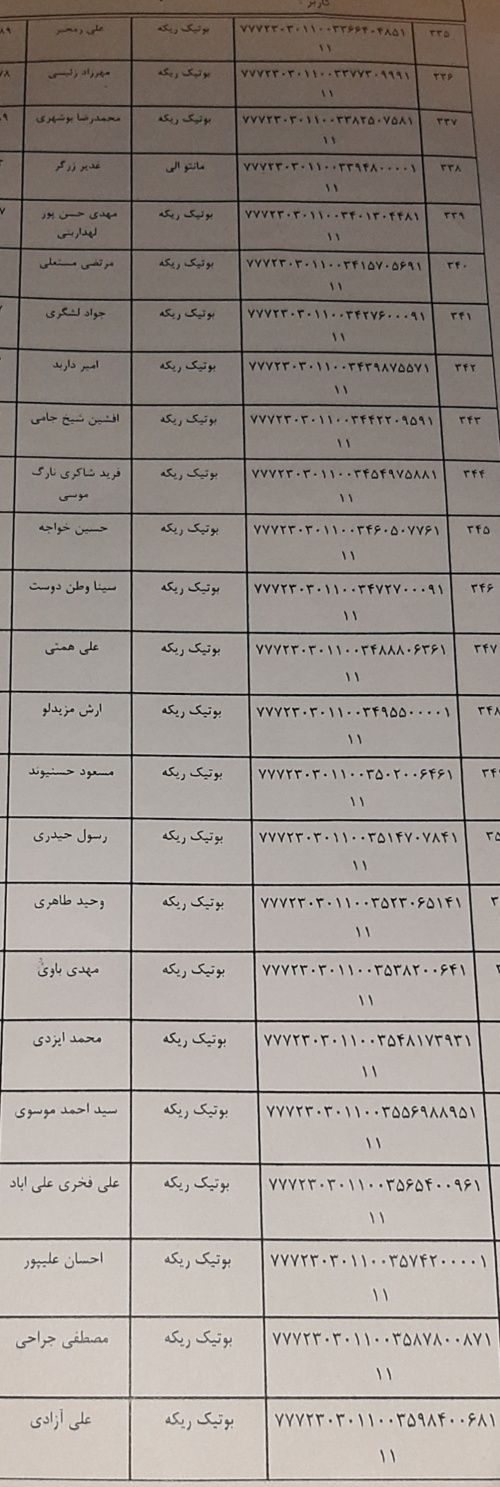 کاربر :
۳۳۵ ۷۷۷۲۳۰۳۰۱۱۰۰۳۳۶۶۴۰۴۸۵۱ بوتیک ریکه علی رمجبر ۸۹
۱۱
۳۳۶ ۷۷۷۲۳۰۳۰۱۱۰۰۳۳۷۷۳۰۹۹۹۱ بوتیک ریکه مهرزاد رئیسی ۷۸
۱۱
۳۳۷ ۷۷۷۲۳۰۳۰۱۱۰۰۳۳۸۲۵۰۷۵۸۱ بوتیک ریکه محمدرضا بوشهری
۱۱
۳۳۸ ۷۷۷۲۳۰۳۰۱۱۰۰۳۳۹۴۸۰۰۰۰۱ مانتو الی غدیر زرگر
۱۱
۳۳۹ ۷۷۷۲۳۰۳۰۱۱۰۰۳۴۰۱۳۰۴۴۸۱ بوتیک ریکه مهدی حسن پور
۱۱ لهداربنی
۳۴۰ ۷۷۷۲۳۰۳۰۱۱۰۰۳۴۱۵۷۰۵۶۹۱ بوتیک ریکه مرتضی مستعلی
۱۱
۳۴۱ ۷۷۷۲۳۰۳۰۱۱۰۰۳۴۲۷۶۰۰۰۹۱ بوتیک ریکه جواد لشگری
۱۱
۳۴۲ ۷۷۷۲۳۰۳۰۱۱۰۰۳۴۳۹۸۷۵۵۷۱ بوتیک ریکه امیر داربد
۱۱
۳۴۳ ۷۷۷۲۳۰۳۰۱۱۰۰۳۴۴۲۲۰۹۵۹۱ بوتیک ریکه افشین شیخ حامی
۱۱
۳۴۴ ۷۷۷۲۳۰۳۰۱۱۰۰۳۴۵۴۹۷۵۸۸۱ بوتیک ریکه فرید شاکری نارگ
۱۱ موسی
۳۴۵ ۷۷۷۲۳۰۳۰۱۱۰۰۳۴۶۰۵۰۷۷۶۱ بوتیک ریکه حسین خواجه
۱۱
۳۴۶ ۷۷۷۲۳۰۳۰۱۱۰۰۳۴۷۲۷۰۰۰۹۱ بوتیک ریکه سینا وطن دوست
۱۱
۳۴۷ ۷۷۷۲۳۰۳۰۱۱۰۰۳۴۸۸۸۰۶۳۶۱ بوتیک ریکه علی همتی
۱۱
۳۴۸ ۷۷۷۲۳۰۳۰۱۱۰۰۳۴۹۵۵۰۰۰۰۱ بوتیک ریکه ارش مزیدلو
۱۱
۷۷۷۲۳۰۳۰۱۱۰۰۳۵۰۲۰۰۶۴۶۱ بوتیک ریکه مسعود حسنیوند
۱۱
۷۷۷۲۳۰۳۰۱۱۰۰۳۵۱۴۷۰۷۸۴۱ بوتیک ریکه رسول حیدری
۱۱
۷۷۷۲۳۰۳۰۱۱۰۰۳۵۲۳۰۶۵۱۴۱ بوتیک ریکه وحید طاهری
۱۱
۷۷۷۲۳۰۳۰۱۱۰۰۳۵۳۸۲۰۰۶۴۱ بوتیک ریکه مهدی باوی
۱۱
۷۷۷۲۳۰۳۰۱۱۰۰۳۵۴۸۱۷۳۹۳۱ بوتیک ریکه محمد ایزدی
۱۱
۷۷۷۲۳۰۳۰۱۱۰۰۳۵۵۶۹۸۸۹۵۱ بوتیک ریکه سید احمد موسوی
۱۱
۷۷۷۲۳۰۳۰۱۱۰۰۳۵۶۵۴۰۰۹۶۱ بوتیک ریکه علی فخری علی اباد
۱۱
۷۷۷۲۳۰۳۰۱۱۰۰۳۵۷۴۲۰۰۰۰۱ بوتیک ریکه احسان علیپور
۱۱
۷۷۷۲۳۰۳۰۱۱۰۰۳۵۸۷۸۰۰۸۷۱ بوتیک ریکه مصطفی جراحی
۱۱
۷۷۷۲۳۰۳۰۱۱۰۰۳۵۹۸۴۰۰۶۸۱ بوتیک ریکه علی آزادی
۱۱